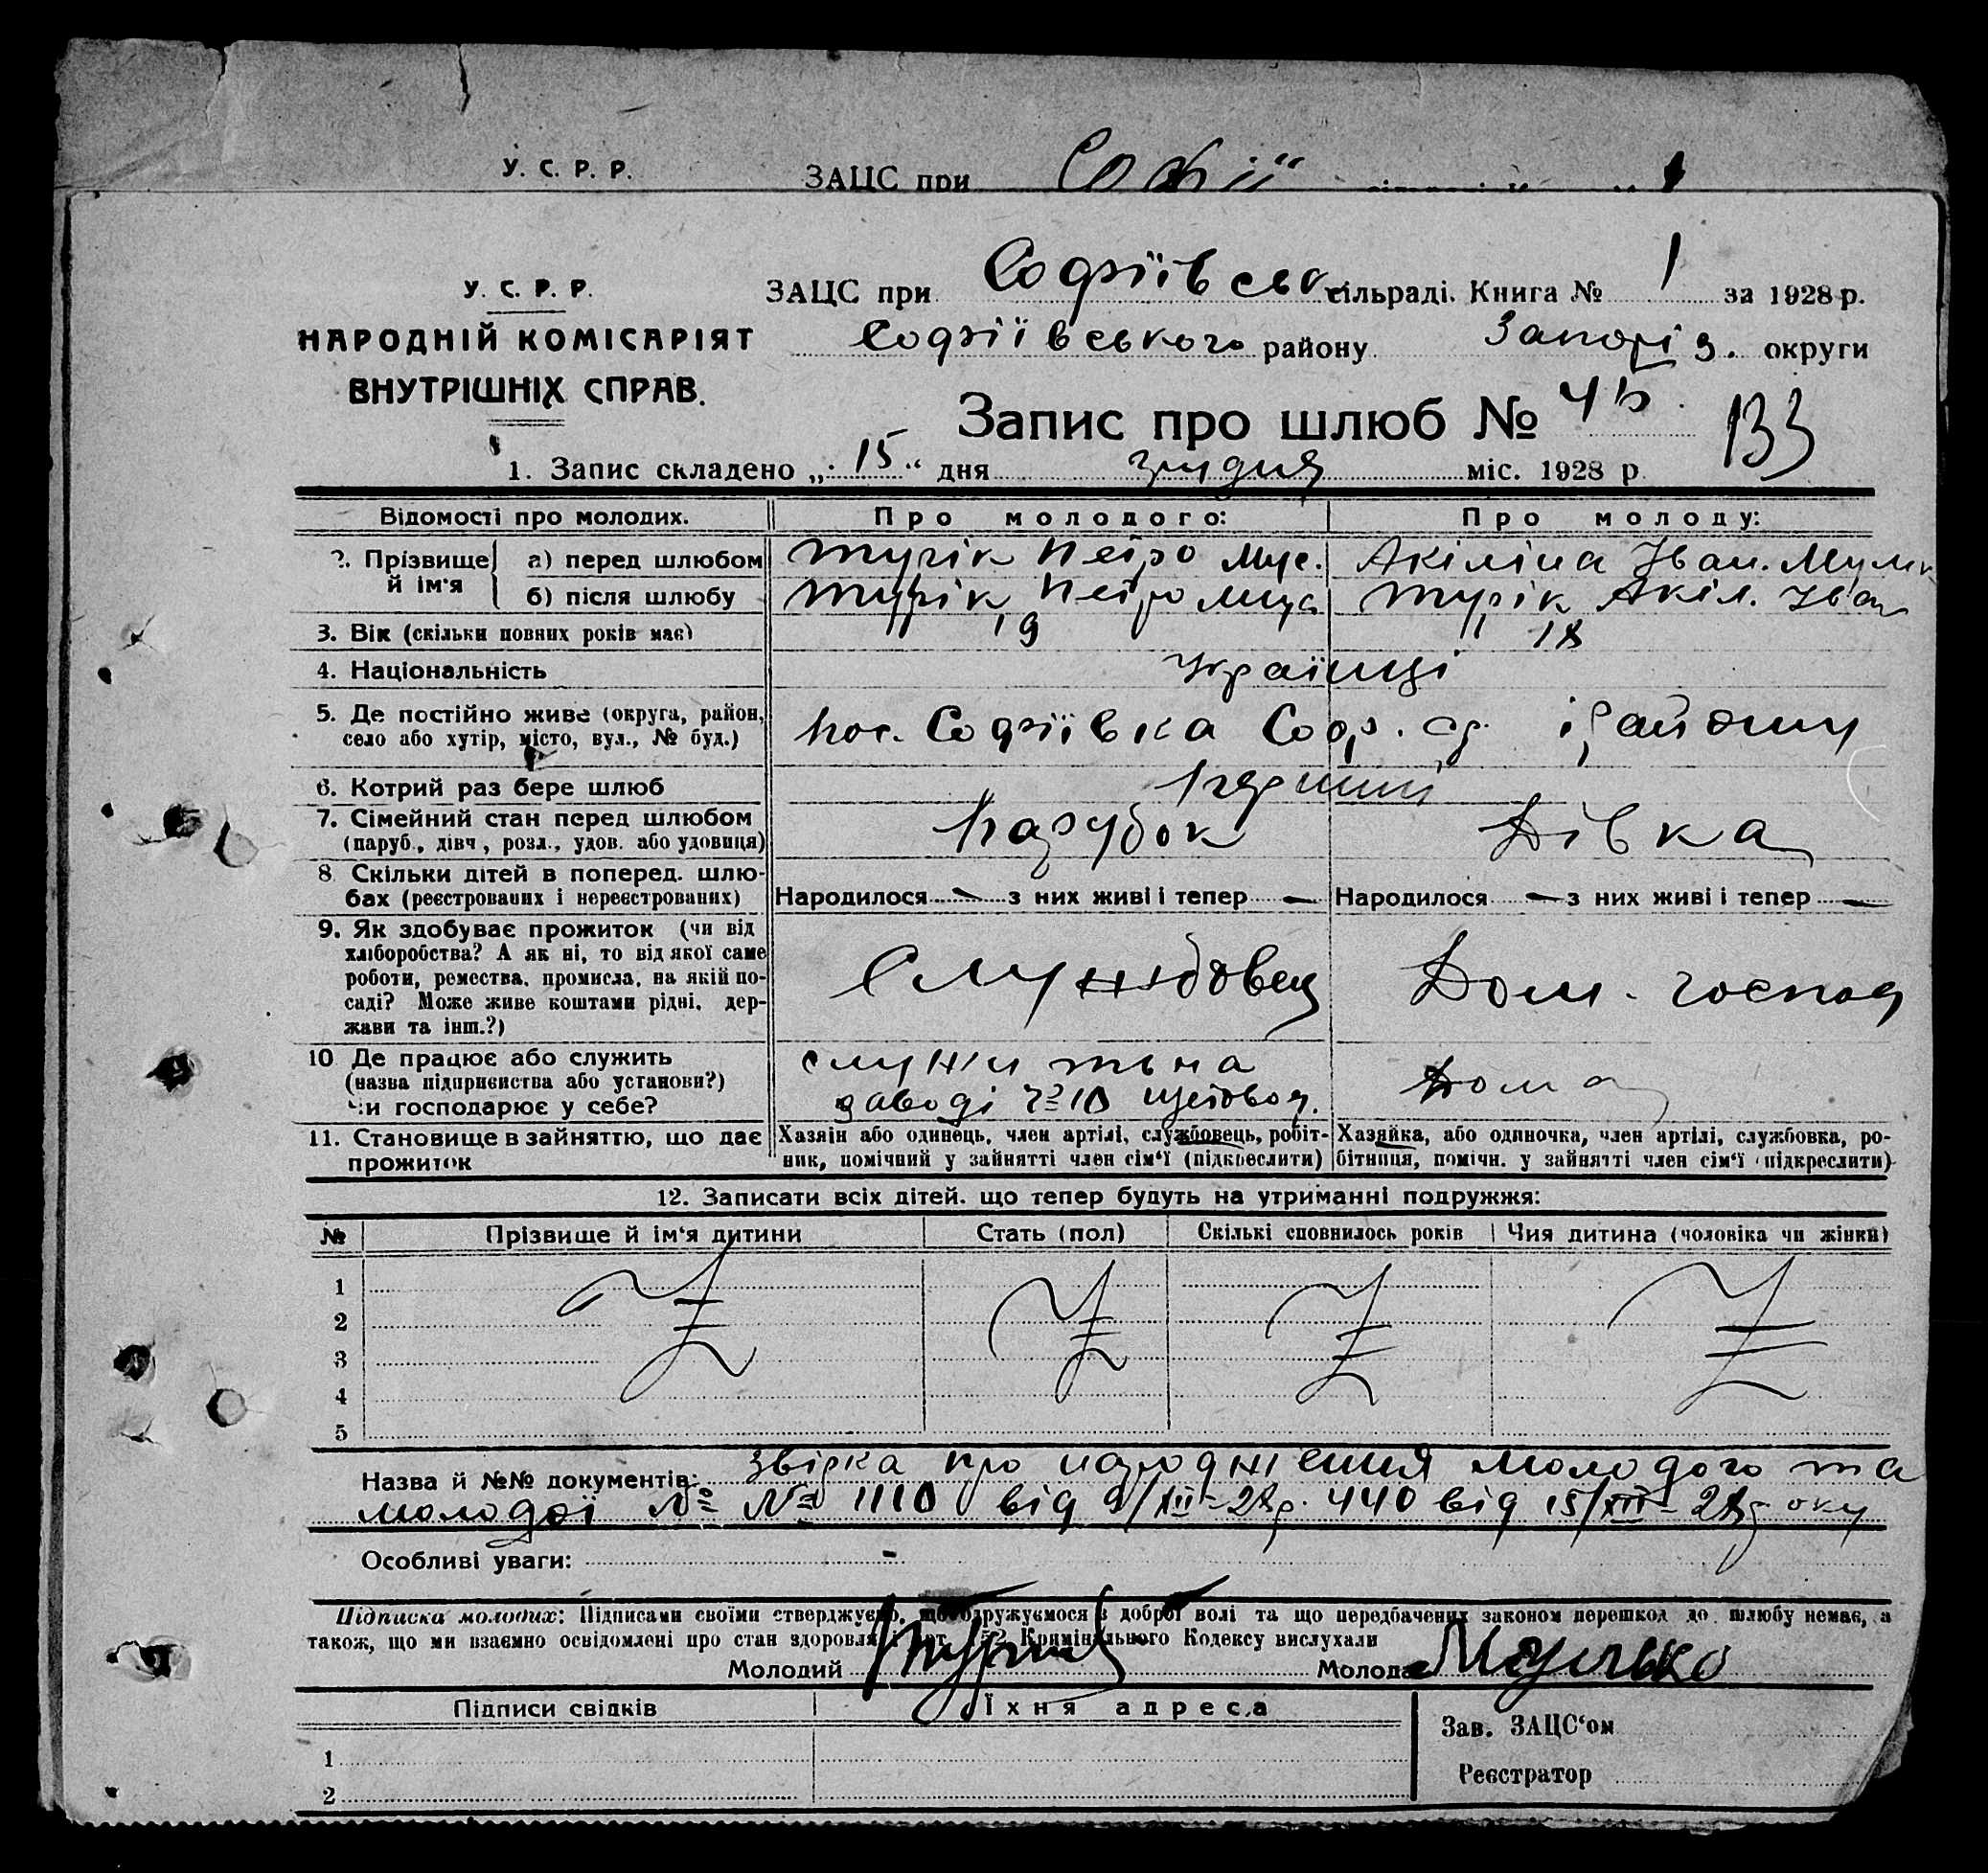 У. С. Р. Р. ЗАЦС при Софії
У. С. Р. Р.
НАРОДНІЙ КОМІСАРІЯТ
ВНУТРІШНІХ СПРАВ.
ЗАЦС при Софіївськ. сільраді. Книга № 1 за 1928 р.
Софіївського району Запоріз. округи
Запис про шлюб № 133
1. Запис складено „15“ дня грудня міс. 1928 р.
Відомості про молодих. Про молодого: Про молоду:
2. Прізвище й ім‘я
а) перед шлюбом Турік Петро Мус. Акіліна Іван.
б) після шлюбу Турік Петро Муса Турік Акіл. Іван
3. Вік (скільки повних років має) 19 18
4. Національність Українці
5. Де постійно живе (округа, район,
село або хутір, місто, вул., № буд.) пос. Софіївка Соф. с/р. і району
6. Котрий раз бере шлюб Перший
7. Сімейний стан перед шлюбом
(паруб., дівч., розл., удов. або удовиця) Парубок Дівка
8. Скільки дітей в поперед. шлю-
бах (реєстрованих і нереєстрованих) Народилося — з них живі і тепер — Народилося — з них живі і тепер —
9. Як здобуває прожиток (чи від
хліборобства? А як ні, то від якої саме
роботи, ремества, промисла, на якій по-
саді? Може живе коштами рідні, дер-
жави та інш.?)
Службовец Дом. господ
10. Де працює або служить
(назва підприємства або установи?)
чи господарює у себе?
служить на
заводі № 10 Дома
11. Становище в зайняттю, що дає
прожиток
Хазяїн або одинець, член артілі, службовець, робіт-
ник, помічний у зайнятті член сім‘ї (підкреслити)
Хазяйка, або одиночка, член артілі, службовка, ро-
бітниця, помічн. у зайнятті член сім‘ї (підкреслити)
12. Записати всіх дітей, що тепер будуть на утриманні подружжя:
№ Прізвище й ім‘я дитини Стать (пол) Скількі сповнилось років Чия дитина (чоловіка чи жінки)
1
2
3
4
5
Назва й №№ документів: Звірка про народження молодого та
молодої № № 1110 від 9/XII-28р. 440 від 15/XII-28 року
Особливі уваги: -
Підписка молодих: Підписами своїми стверджуємо, що одружуємося з доброї волі та що передбачених законом перешкод до шлюбу немає, а
також, що ми взаємно освідомлені про стан здоровля і арт. 152 Кримінального Кодексу вислухали
Молодий Молода
Підписи свідків Їхня адреса
1
2
Зав. ЗАЦС‘ом
Реєстратор